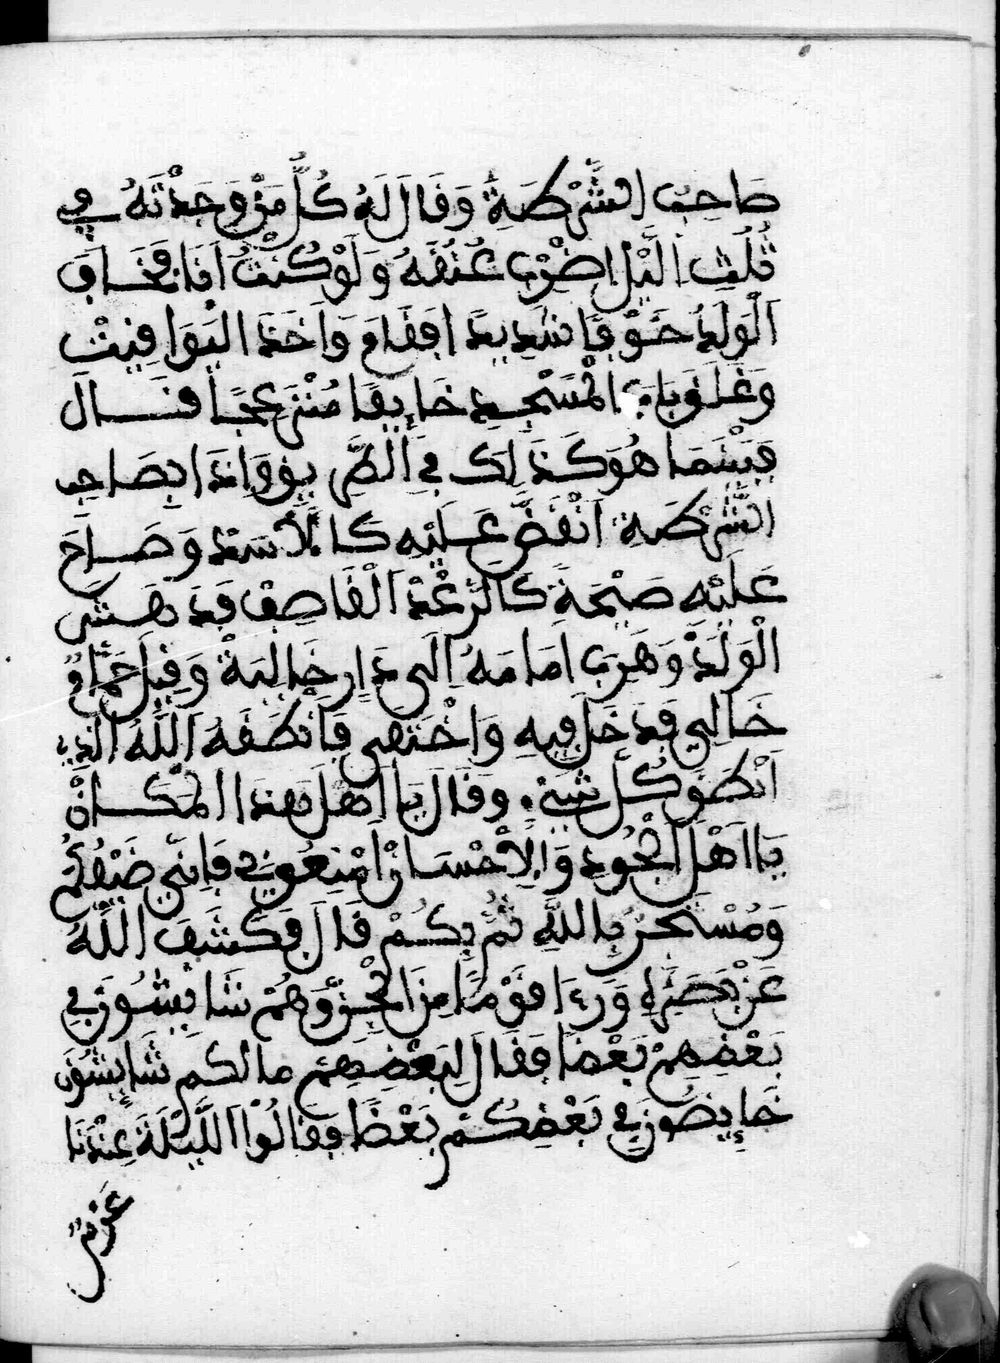 صَاحِبُ الشُّرْطَةِ وَقَالَ لَهُ كُلُّ مَنْ وَجَدْتَهُ فِي
ثُلُثِ اللَّيْلِ اضْرِبْ عُنُقَهُ وَلَوْ كُنْتُ أَنَا فَخَافَ
الْوَلَدُ خَوْفًا شَدِيدًا فَقَامَ وَأَخَذَ الْيَوَاقِيتْ
وَغَلَقَ بَابَ الْمَسْجِدِ خَايِفًا مُنْزَعِجًا قَالَ
فَبَيْنَمَا هُوَ كَذَلِكَ فِي الطَّرِيقِ وَإِذَا بِصَاحِبِ
الشُّرْطَةِ انْقَضَّ عَلَيْهِ كَالْأَسَدِ وَصَاحَ
عَلَيْهِ صَيْحَةً كَالرَّعْدِ الْقَاصِفْ فَدَهَشَ
الْوَلَدُ وَهَرَبَ أَمَامَهُ إِلَى دَارٍ خَالِيَةْ وَقِيلَ حَمَّامْ
خَالِي فَدَخَلَ فِيهِ وَاخْتَفَى فَأَنْطَقَهُ اللَّهُ الَّذِي
أَنْطَقَ كُلَّ شَيْءٍ وَقَالَ يَا أَهْلَ هَذَا الْمَكَانْ
يَا أَهْلَ الْجُودِ وَالْإِحْسَانْ امْنَعُونِي فَإِنِّي ضَيْفُكُمْ
وَمُسْتَجِيرٌ بِاللَّهِ ثُمَّ بِكُمْ قَالَ فَكَشَفَ اللَّهُ
عَنْ بَصَرِهِ وَرَءَا قَوْمًا مِنَ الْجِنِّ وَهُمْ شَابِشُونَ فِي
بَعْضِهِمْ بَعْضًا فَقَالَ لِبَعْضِهِمْ مَا لَكُمْ شَابِشُونَ
خَايِضُونَ فِي بَعْضِكُمْ بَعْضًا فَقَالُوا اللَّيْلَةَ عِنْدَنَا